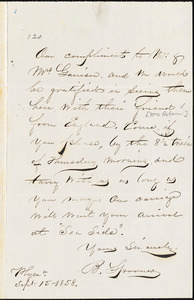 120
Our compliments to Mr &
Mrs Garrison, and we would
be gratified in seeing them
here with their friend
from England. Come, if
you please, by the 8 ½ train
of Thursday morning and
tarry with us as long as
you may. Our carriage
will wait your arrival
at "Sea Side".
Yours Sincerely,
B. Spooner
Plym°
Sept. 15 - 1858.